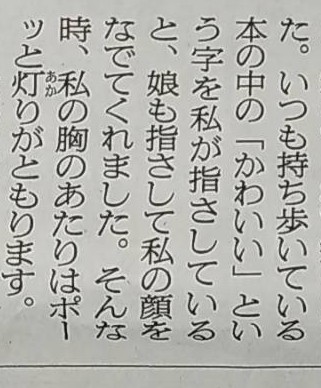 た。いつも持ち歩いている
本の中の「かわいい」とい
う字を私が指さしている
と、娘も指さして私の顔を
なでてくれました。そんな
時、私の胸のあたりはポー
ッと灯りがともります。
あか